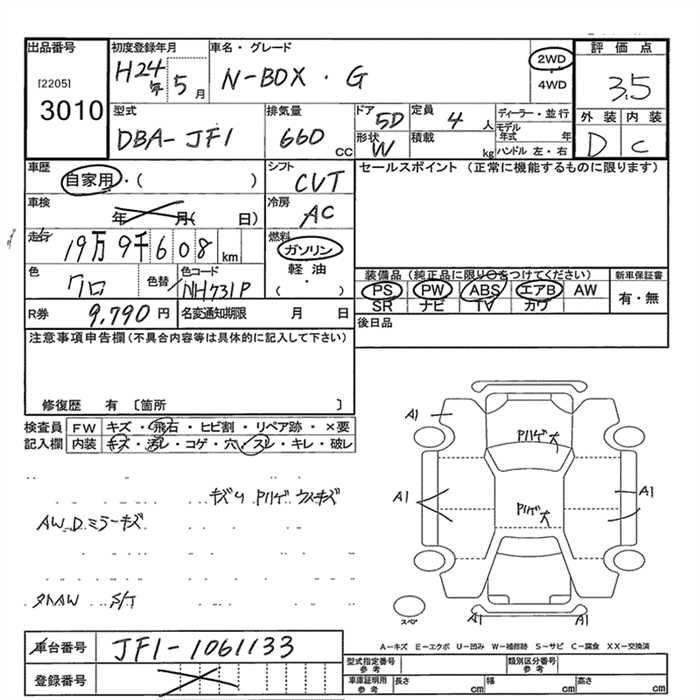 出品番号 初度登録年月 車名・グレード 評価点
[2205] H24年 5月 N-BOX・G 2WD 3.5
3010 4WD
外装 内装
型式 排気量 ドア 5D 定員 4人 ディーラー・並行 D C
DBA-JF1 660CC 形状 W 積載 kg モデル年式 年
ハンドル 左・右
車歴 シフト セールスポイント (正常に機能するものに限ります)
自家用・( ) CVT
車検 年 月( 日) 冷房 AC
走行 19万9千608km 燃料 ガソリン
軽油
( )
色 クロ 色替 色コード NH731P 装備品 (純正品に限り○をつけてください) 新車保証書
PS PW ABS エアB AW 有・無
SR ナビ TV カワ
R券 9,790円 名変通知期限 月 日 後日品
注意事項申告欄 (不具合内容等は具体的に記入して下さい)
修復歴 有 〔箇所 〕
検査員 FW キズ・飛石・ヒビ割・リペア跡・×要
記入欄 内装 キズ・汚レ・コゲ・穴・スレ・キレ・破レ
キズ Pハゲ ウスキズ
AW.D.ミラーキズ
タトAW S/T
A1
Pハゲ大
A1 A1
Pハゲ大
スペア A1 A1
A-キズ E-エクボ U-凹み W-補修跡 S-サビ C-腐食 XX-交換済
車台番号 JF1-1061133
登録番号
型式指定番号 参考 類別区分番号 参考
車庫証明用 参考 長さ cm 幅 cm 高さ cm